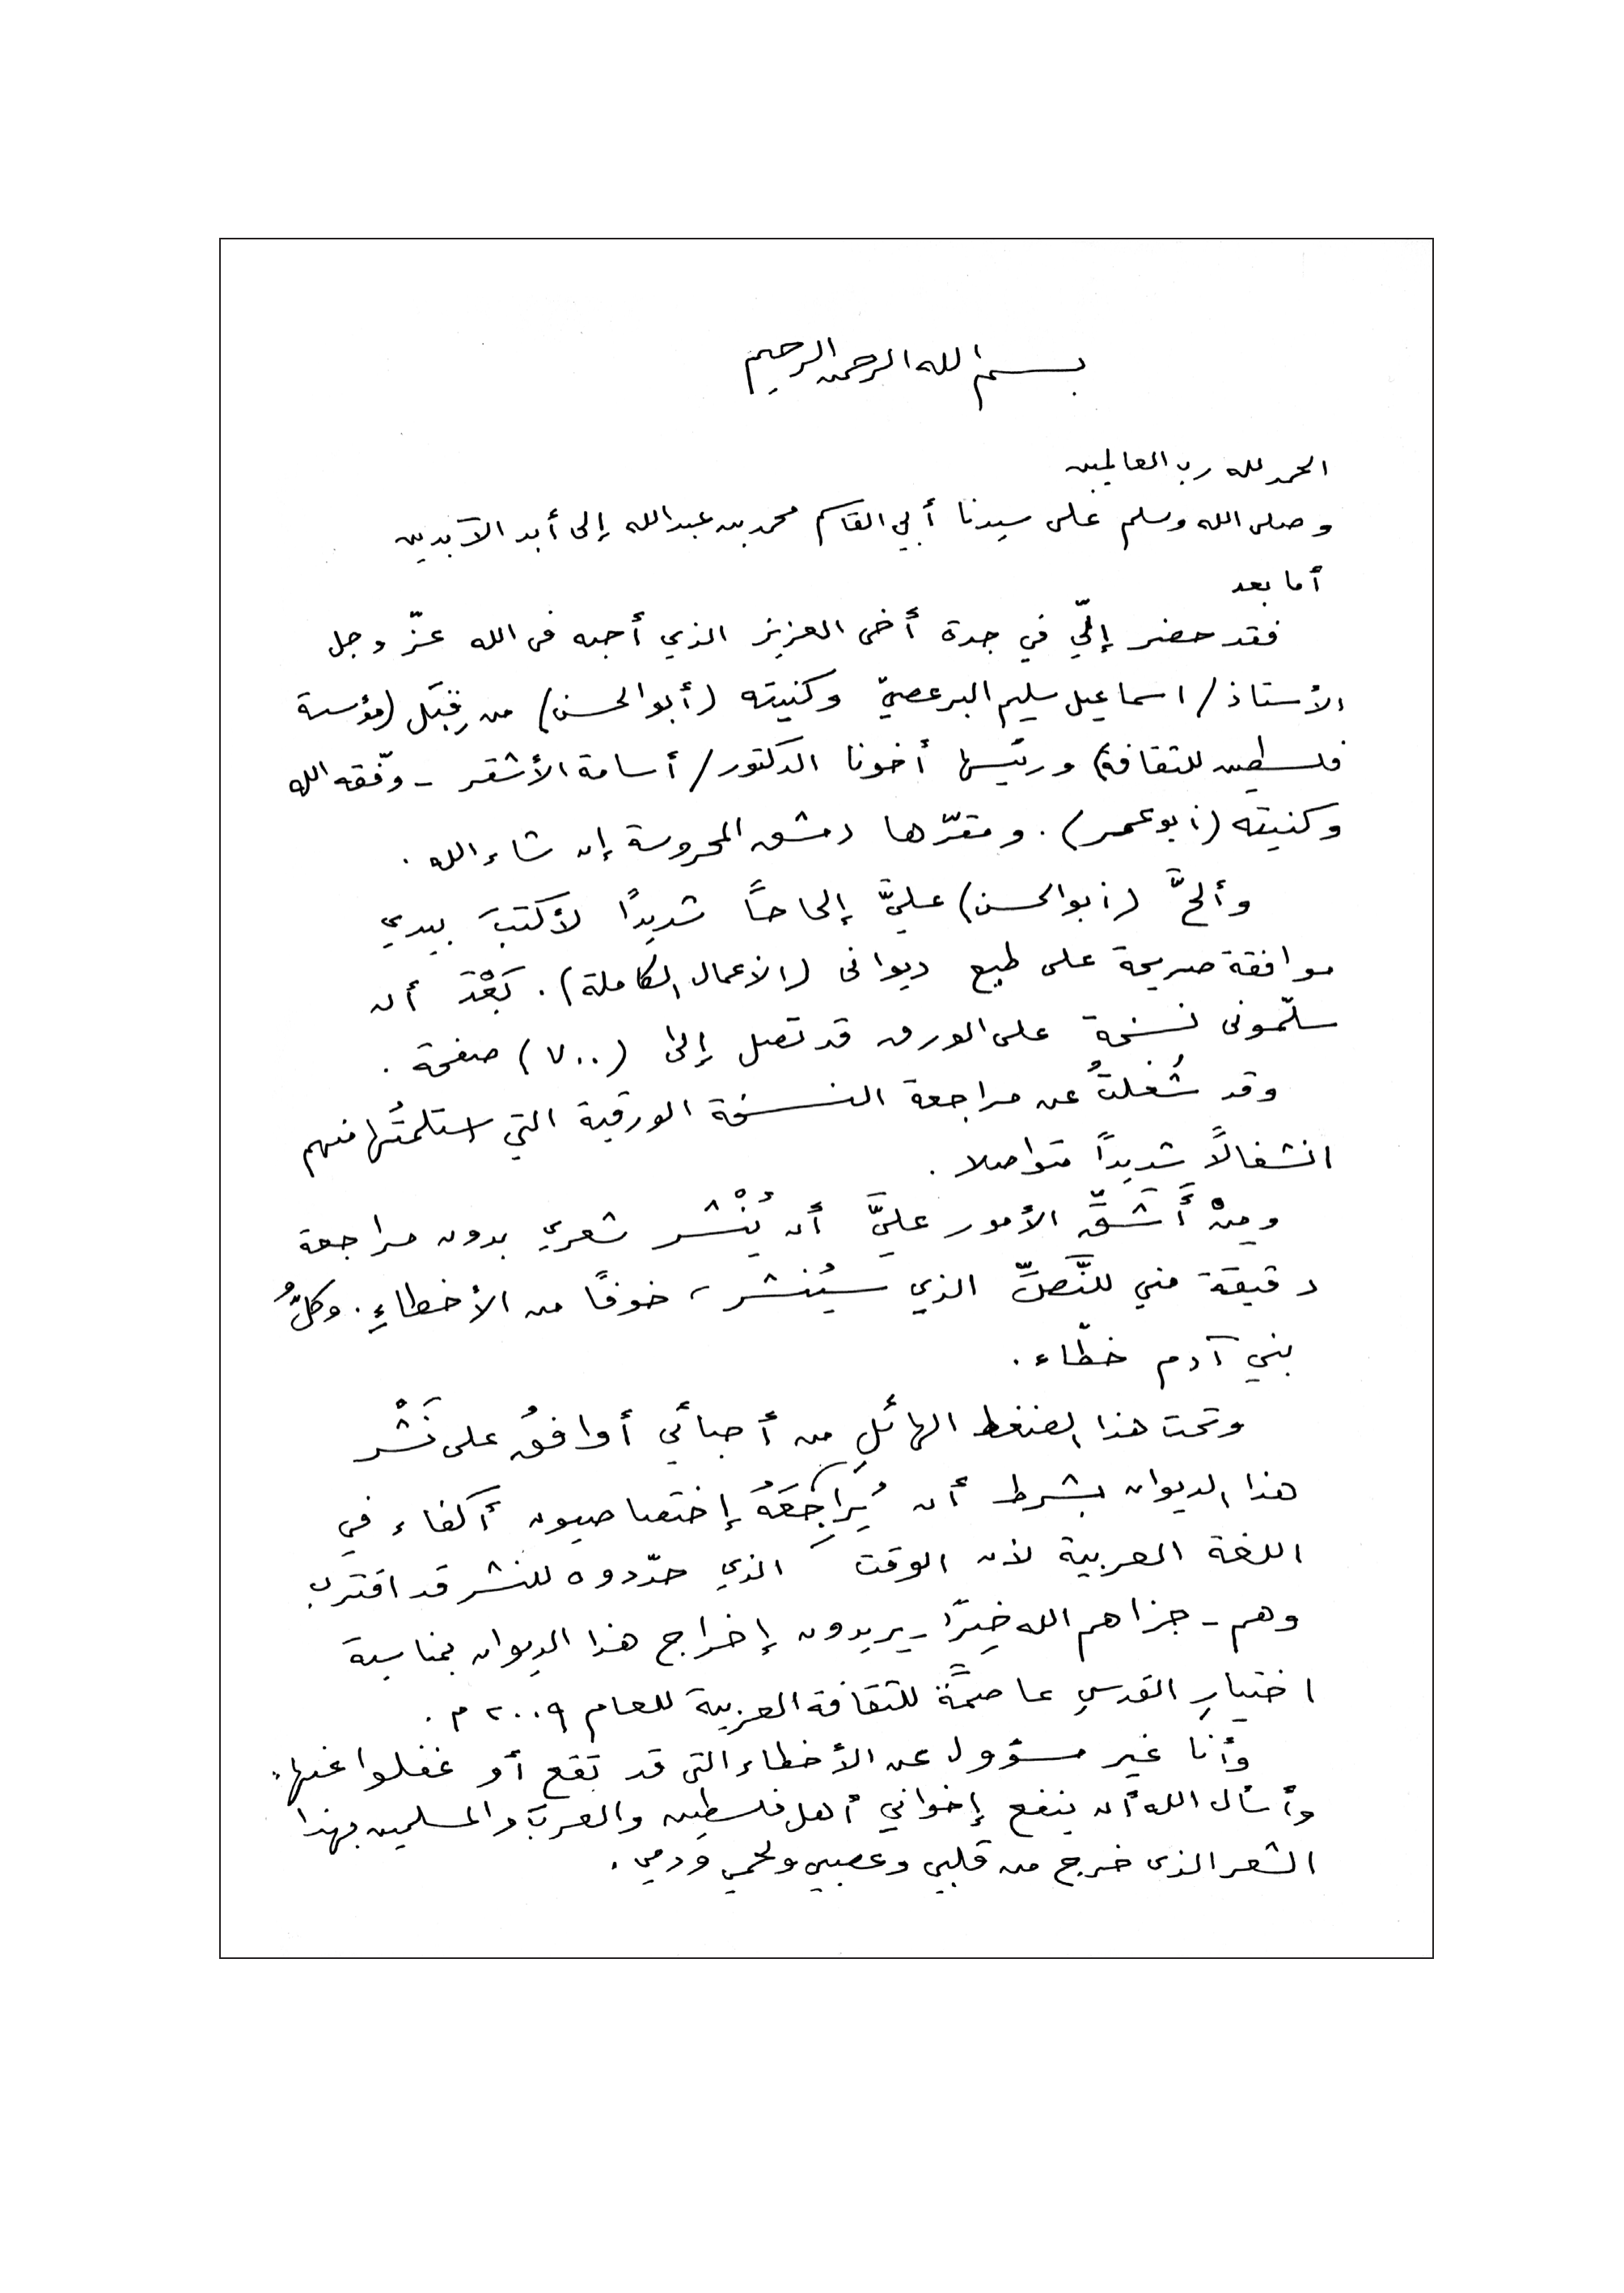 بسم الله الرحمن الرحيم
الحمد لله رب العالمين
وصلى الله وسلم على سيدنا أبي القاسم محمد بن عبدالله إلى أبد الآبدين
أما بعد
فقد حضر إليّ في جدة أخى العزيز الذي أحبه فى الله عزّ وجل
الأستاذ / اسماعيل سليم البرعصيّ وكنيته (أبو الحسن) من قِبَل (مؤسسة
فلسطين للثقافة) ورئيسها أخونا الدكتور / أسامة الأشقر - وفّقه الله
وكنيته (أبو عمر) . ومقرّها دمشق المحروسة إن شاء الله .
وألحَّ (أبو الحسن) عليَّ إلحاحًا شديدًا لأكتبَ بيدي
موافقة صريحة على طبع ديوانى (الأعمال الكاملة) . بَعْدَ أن
سلّمونى نسخة على الورق قد تصل إلى (٧٠٠) صفحة .
وقد شُغلتُ عن مراجعة النسخة الورقية التي استلمتُها منهم
انشغالًا شديدًا متواصلا .
ومِنْ أَشَقِّ الأمور عليَّ أن يُنْشر شعري بدون مراجعة
دقيقة مني للنَّصِّ الذي سيُنشر ، خوفًا من الأخطاءِ . وكلُّ
بني آدم خطّاء .
وتحت هذا الضغط الهائلِ من أحبائي أوافقُ على نَشْر
هذا الديوان بشرط أن يُراجِعَهُ إختصاصيون أكفاء في
اللغة العربية لأن الوقت الذي حدّدوه للنشر قد اقترب
وهم - جزاهم الله خيرًا - يريدون إخراج هذا الديوان بمناسبة
اختيارِ القدسِ عاصمةً للثقافة العربية للعام ٢٠٠٩ م .
وأنا غير مسؤول عن الأخطاء التى قد تقع أو غفلوا عنها .
وأسأل الله أن ينفع إخواني أهل فلسطين والعرب والمسلمين بهذا
الشعر الذى خرج من قلبي وعصبي ولحمي ودمي .